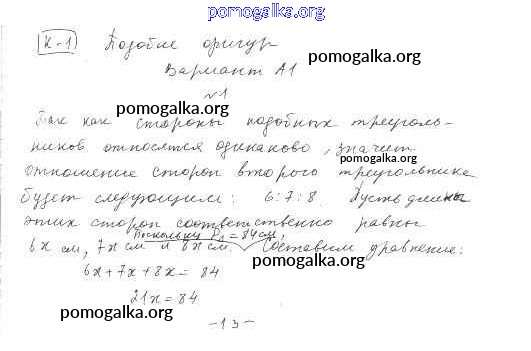 pomogalka.org
К-1 Подобие фигур
pomogalka.org
Вариант А1
№1
pomogalka.org
Так как стороны подобных треуголь-
ников относятся одинаково, значит
pomogalka.org
отношение сторон второго треугольника
будет следующим: 6:7:8. Пусть длины
pomogalka.org
этих сторон соответственно равны
Поскольку P = 84 см,
6x см, 7x см и 8x см. Составим уравнение:
pomogalka.org
6x+7x+8x= 84
21x=84
pomogalka.org
pomogalka.org
-13-